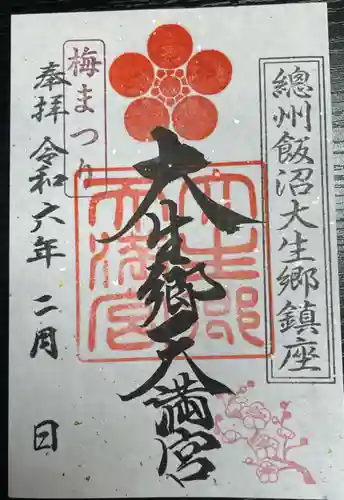 總州飯沼大生郷鎮座
大生郷天満宮
梅まつり
奉拝 令和六年 二月 日